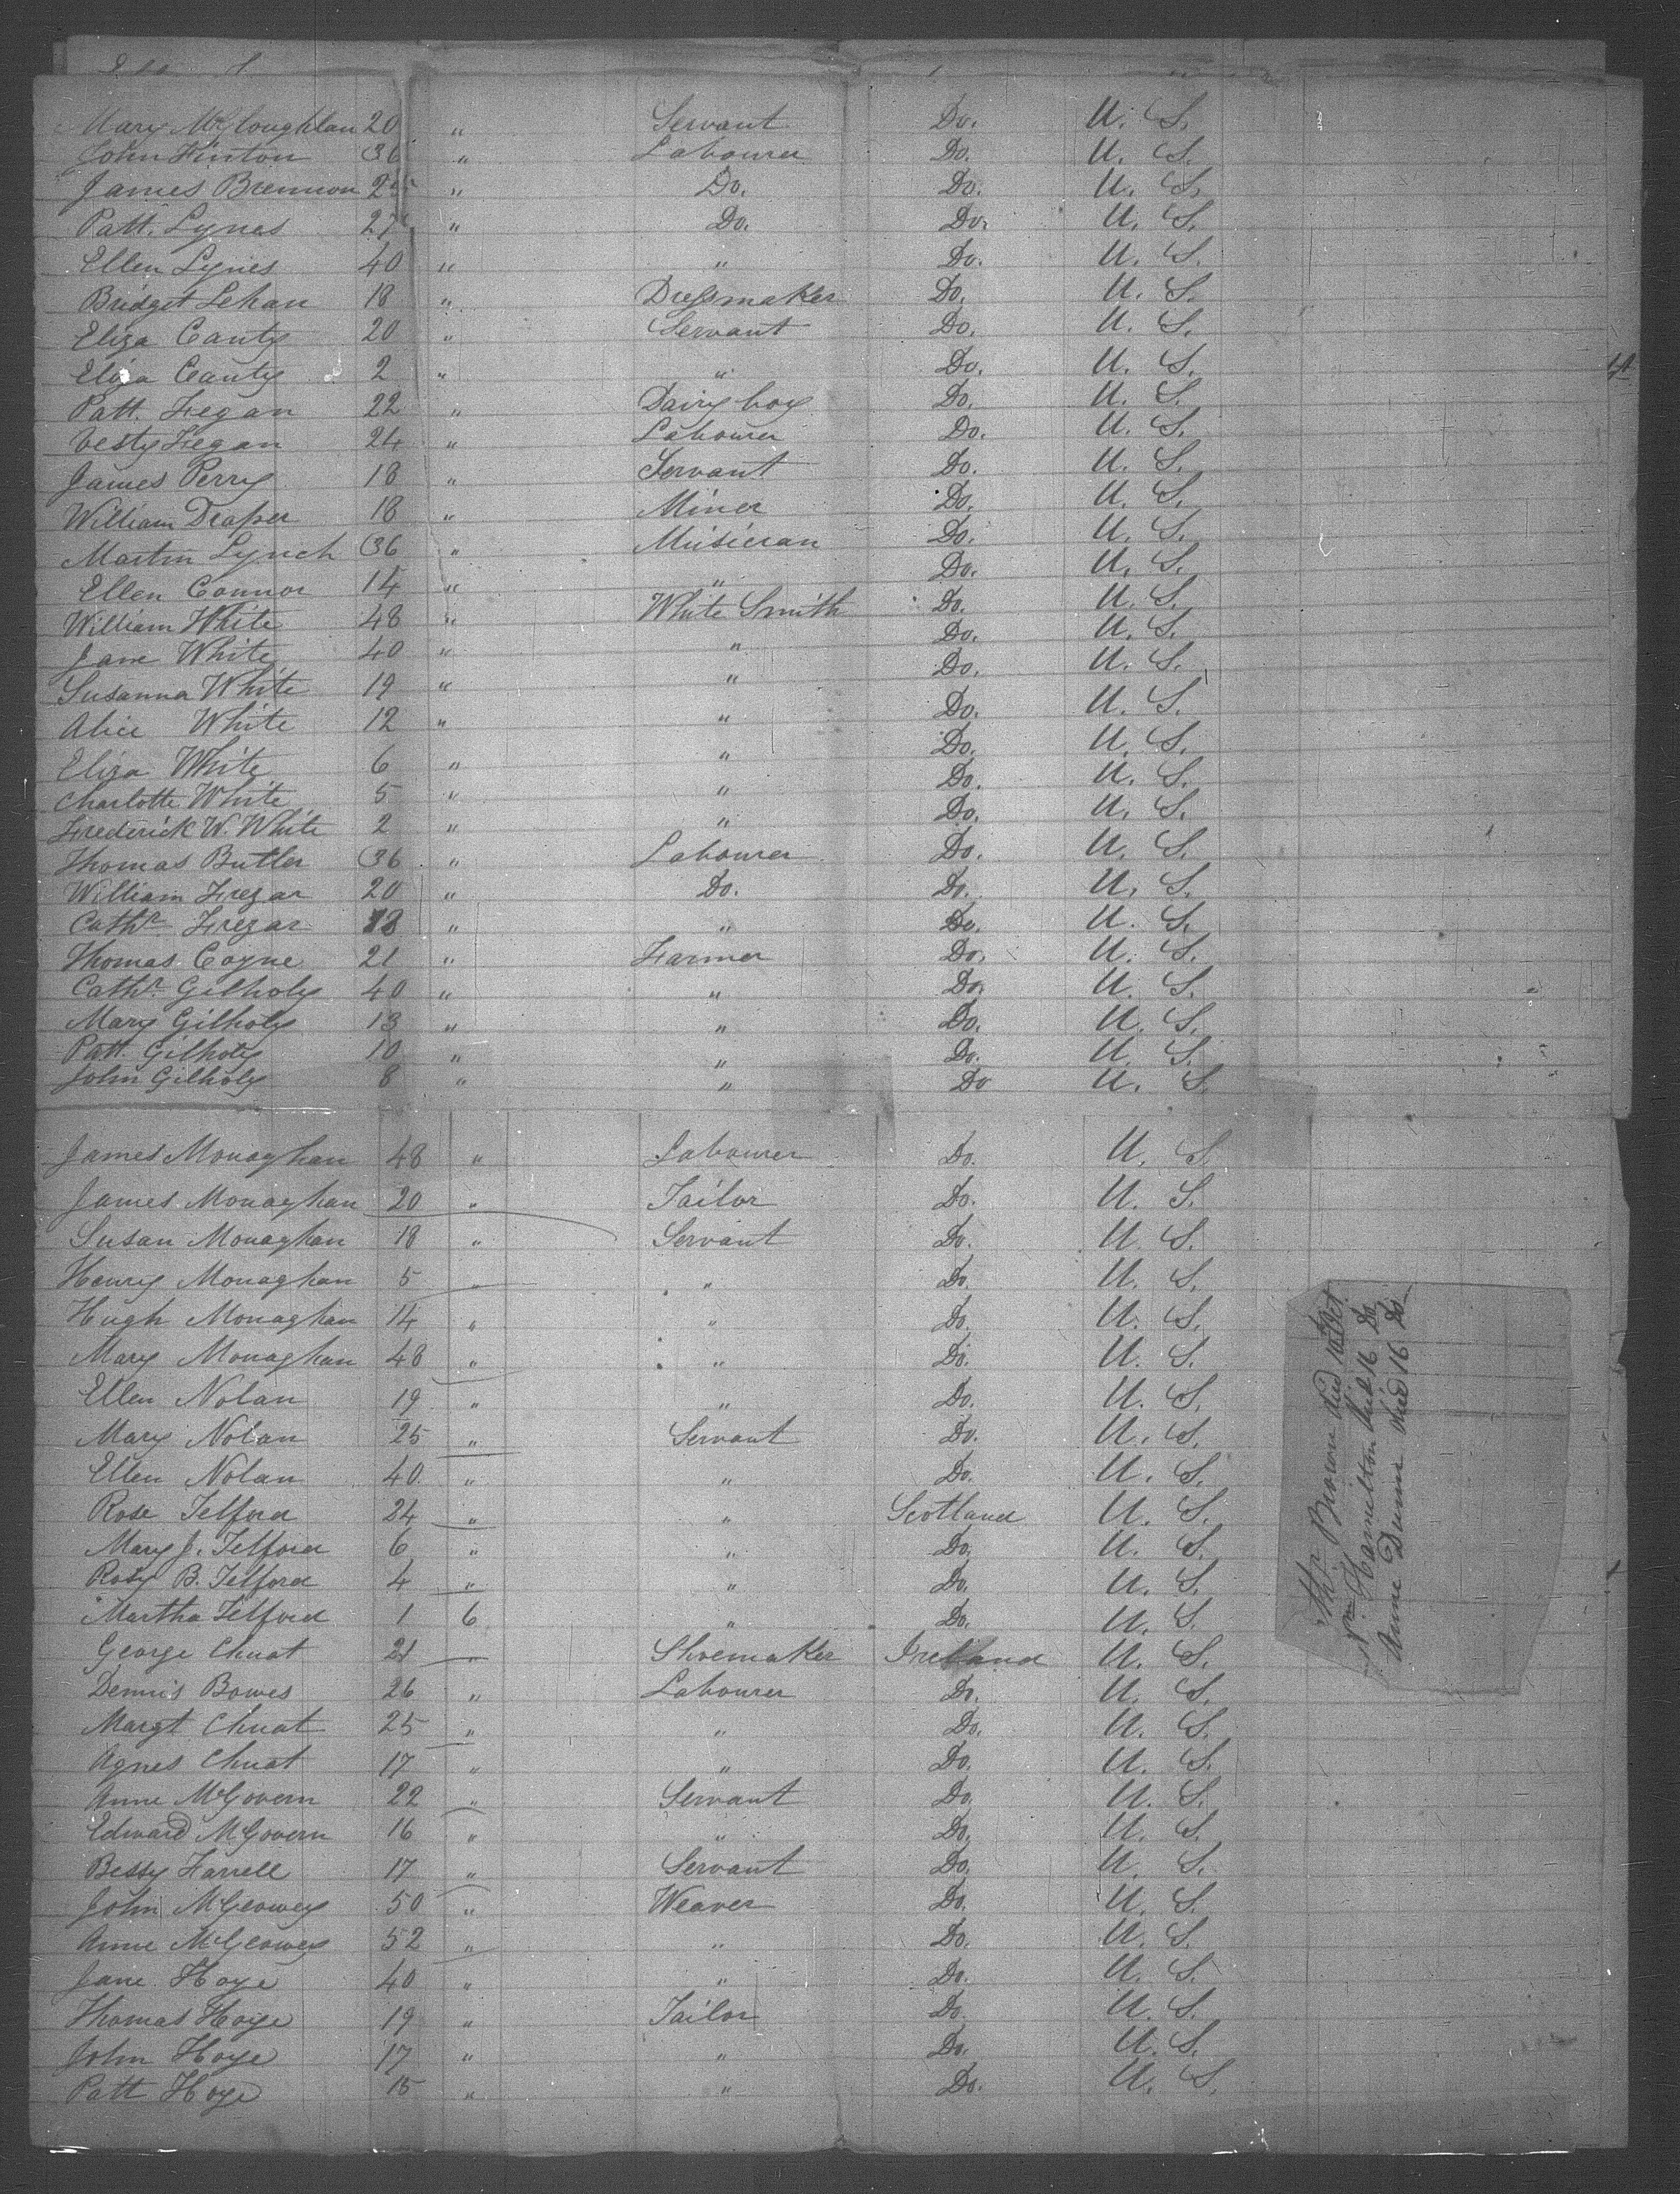 Mary McGloughlan 20 " Servant Do. U. S.
John Finton 36 " Labourer Do. U. S.
James Brennon 25 " Do. Do. U. S.
Patt. Lynes 27 " Do. Do. U. S.
Ellen Lynes 40 " " Do. U. S.
Bridget Lehan 18 " Dressmaker Do. U. S.
Eliza Canty 20 " Servant Do. U. S.
Eliza Canty 2 " " Do. U. S.
Patt. Fegan 22 " Dairy boy Do. U. S.
Vesty Fegan 24 " Labourer Do. U. S.
James Perry 18 " Servant Do. U. S.
William Draper 18 " Miner Do. U. S.
Martin Lynch 36 " Musician Do. U. S.
Ellen Connor 14 " " Do. U. S.
William White 48 " White Smith Do. U. S.
Jane White 40 " " Do. U. S.
Susanna White 19 " " Do. U. S.
Alice White 12 " " Do. U. S.
Eliza White 6 " " Do. U. S.
Charlotte White 5 " " Do. U. S.
Frederick W. White 2 " " Do. U. S.
Thomas Butler 36 " Labourer Do. U. S.
William Frezar 20 " Do. Do. U. S.
Cathr. Frezar " " Do. U. S.
Thomas Coyne 21 " Farmer Do. U. S.
Cathr. Gilholy 40 " " Do. U. S.
Mary Gilholy 13 " " Do. U. S.
Patt. Gilholy 10 " " Do. U. S.
John Gilholy 8 " " Do U. S.
James Monaghan 48 " Labourer Do. U. S.
James Monaghan 20 " Tailor Do. U. S.
Susan Monaghan 18 " Servant Do. U. S.
Henry Monaghan 5 " " Do. U. S.
Hugh Monaghan 14 " " Do. U. S.
Mary Monaghan 48 " " Do. U. S.
Ellen Nolan 19 " " Do. U. S.
Mary Nolan 25 " Servant Do. U. S.
Ellen Nolan 40 " " Do. U. S.
Rose Telford 24 " " Scotland U. S.
Mary J. Telford 6 " " Do. U. S.
Rosy B. Telford 4 " " Do. U. S.
Martha Telford 1 6 " Do. U. S.
George Chuat 21 " Shoemaker Ireland U. S.
Dennis Bowes 26 " Labourer Do. U. S.
Margt Chuat 25 " " Do. U. S.
Agnes Chuat 17 " " Do. U. S.
Anne McGovern 22 " Servant Do. U. S.
Edward McGovern 16 " " Do. U. S.
Bessy Farrell 17 " Servant Do. U. S.
John McGeowey 50 " Weaver Do. U. S.
Anne McGeowey 52 " " Do. U. S.
Jane Hoye 40 " " Do. U. S.
Thomas Hoye 19 " Tailor Do. U. S.
John Hoye 17 " " Do. U. S.
Patt Hoye 15 " " Do. U. S.
Brown died Oct.
Wm Hamilton died 16 Do
Anne Dunn died 16 Do